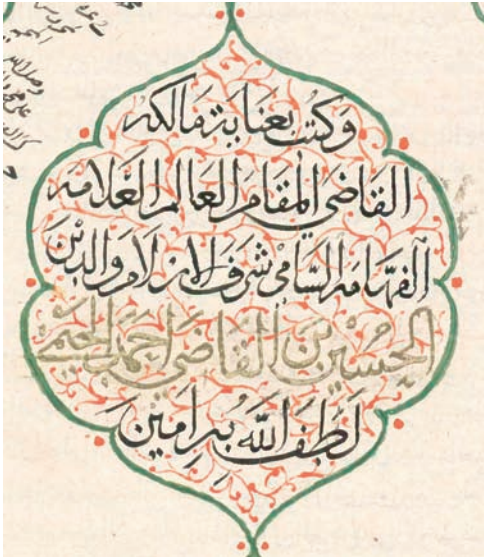 وكتب بعناية مالكه
القاضي المقام العالم العلامه
الفهامه السامي شرف الاسلام والدين
الحسين بن القاضي احمد الحيمي
لطف الله به امين